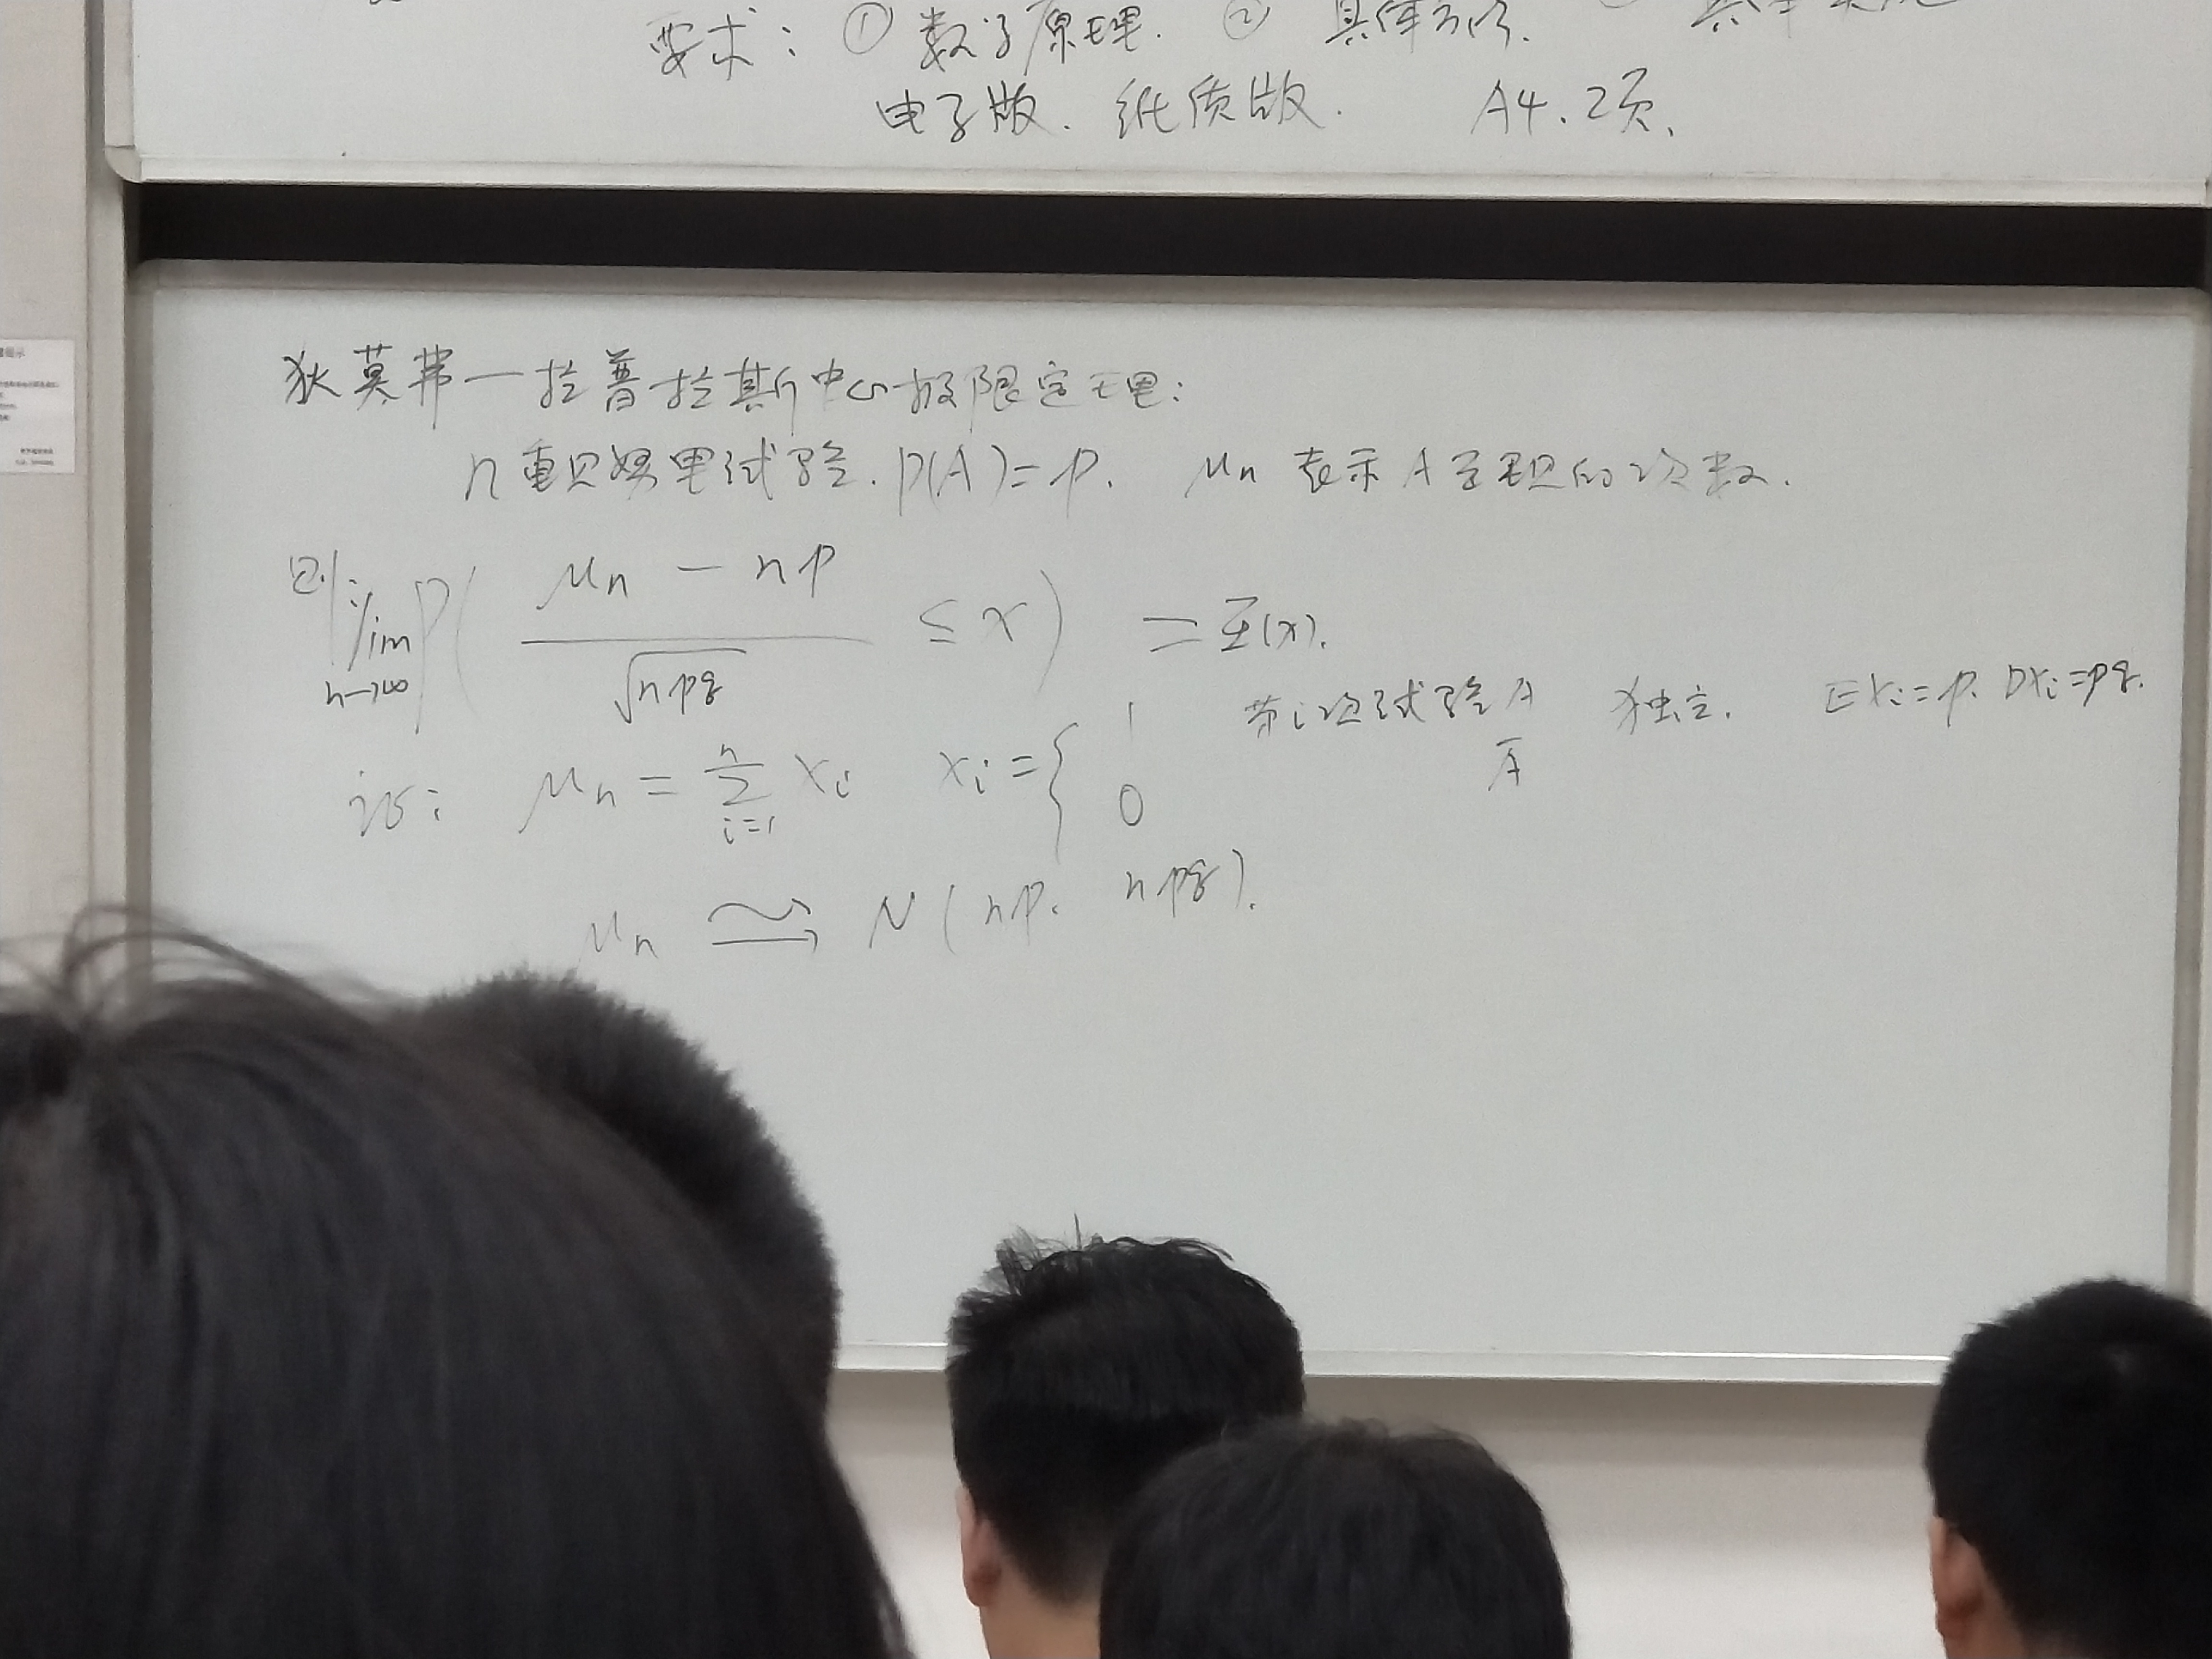 要求: ① 数学原理. ② 具体方法.
电子版. 纸质版. A4. 2页.
狄莫弗—拉普拉斯中心极限定理:
n重贝努里试验. P(A)=p. μn 表示A出现的次数.
则 lim n→∞ P( (μn - np) / √npq ≤ x ) = Φ(x).
证: μn = Σ i=1 n Xi Xi = { 1 第i次试验A 独立. EXi=p. DXi=pq.
0 Ā
μn ~ N(np. npq).